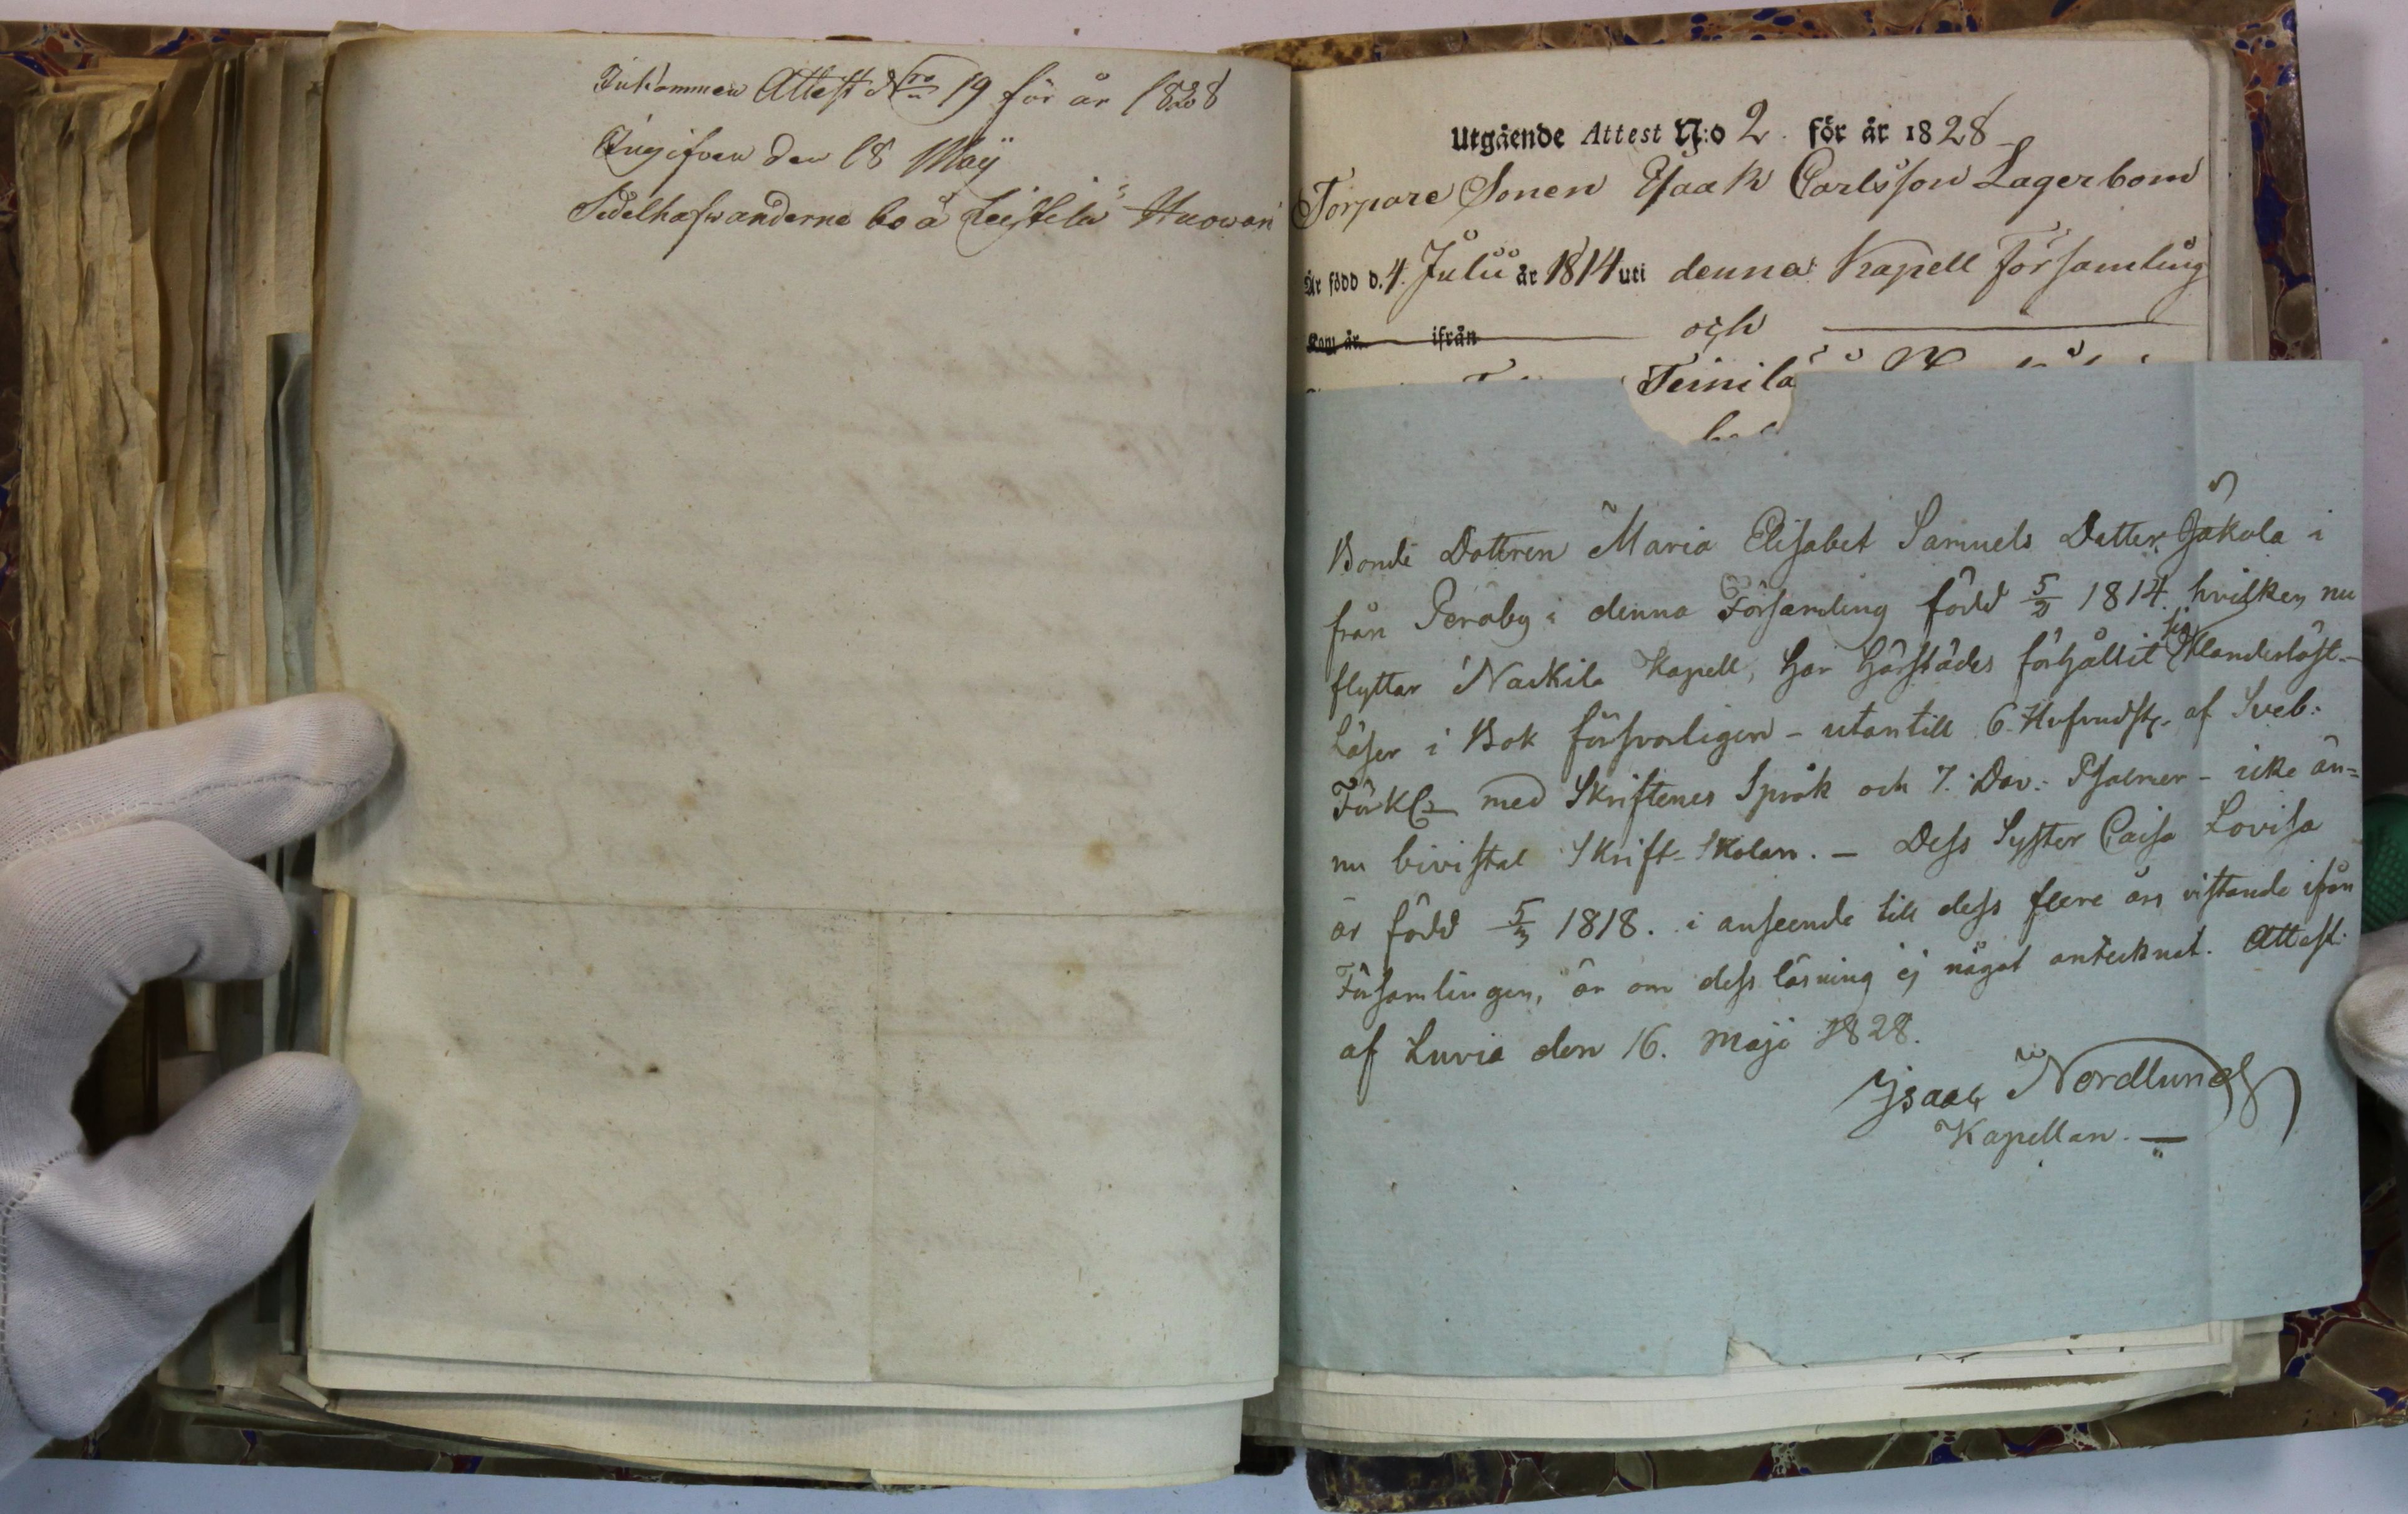 Inkommen Attest Nro 19 för år 1828
Ingifven den 18 Maÿ
Sedelhafwanderne bo å Leistilä Huowari
Utgående Attest N:o 2 för år 1828
Torpare Sonen Isaak Carlsson Lagerbom
Är född d. 4. Julii år 1814 uti denna Kapell Församling
Kom år ifrån och
Teinilä
Bonde Dottren Maria Elisabet Samuels Dotter Jakola i
från Peräby i denna Församling född 5/2 1814. hvilken nu
flyttar Nackila Kapell, har härstädes förhållit sig Klanderlöst.
Läser i Bok försvarligen - utantill 6. Hufvudst. af Sveb:
Förkl. med Skriftenes Språk och 7. Dav: Psalmer - icke än=
nu bivistat Skrift-Skolan. - Dess Syster Caisa Lovisa
är född 5/3 1818. i anseende till dess flere års vistande ifrån
Församlingen, är om dess läsning ej något antecknat. Attest.
af Luvia den 16. Maji 1828.
Isaac Nordlund
Kapellan.